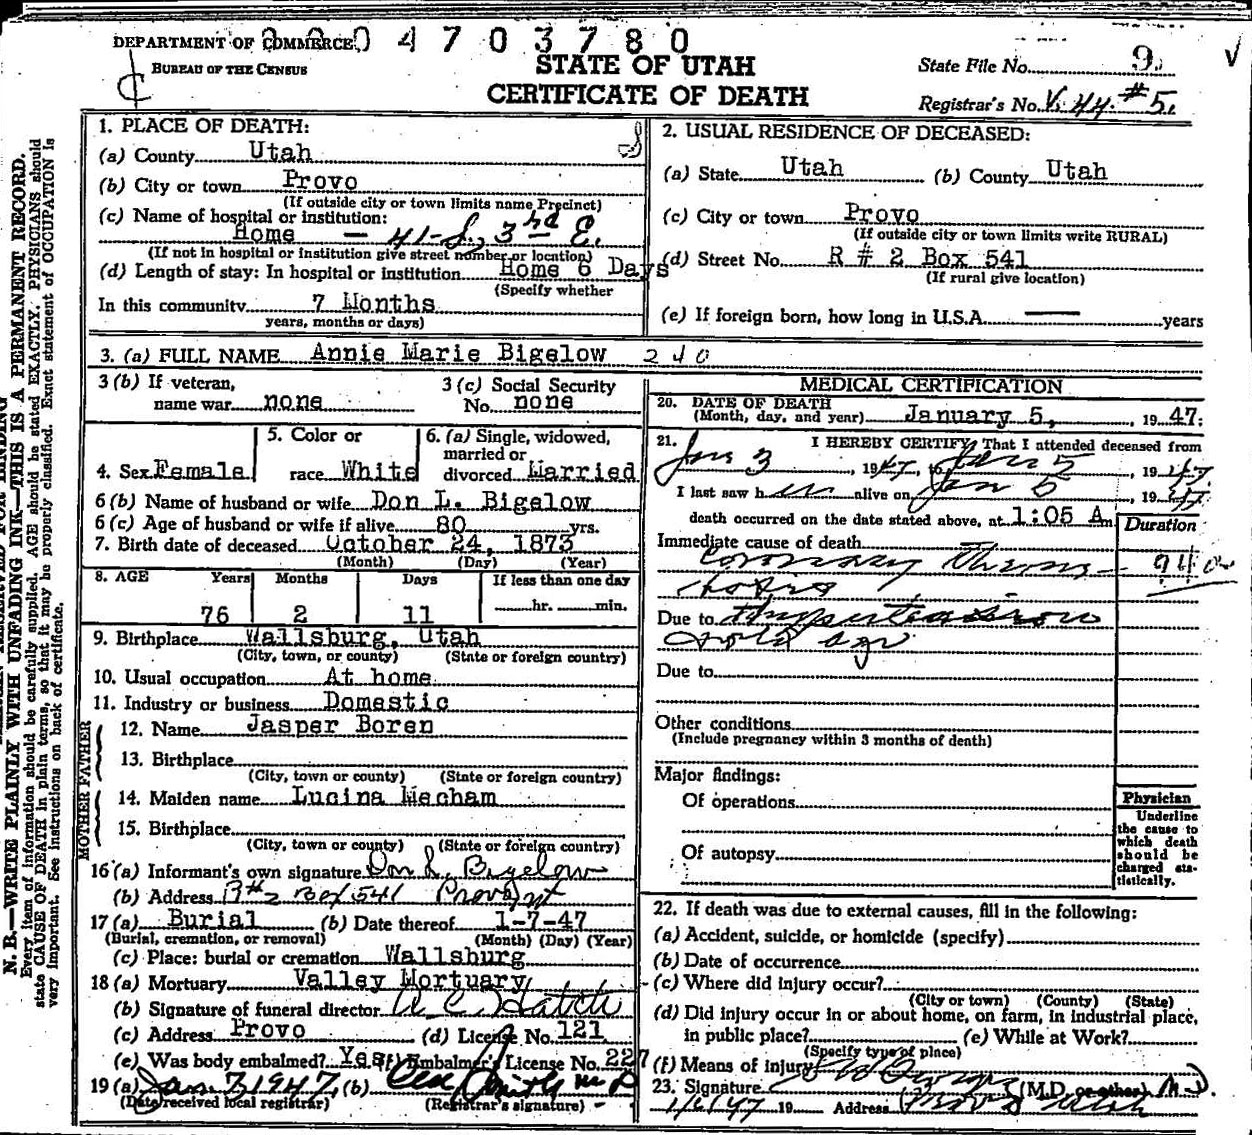 DEPARTMENT OF COMMERCE
BUREAU OF THE CENSUS
04703780
STATE OF UTAH
CERTIFICATE OF DEATH
State File No. 9
Registrar's No. V. 44 #5.
N. B.—WRITE PLAINLY WITH UNFADING INK—THIS IS A PERMANENT RECORD.
Every item of information should be carefully supplied. AGE should be stated EXACTLY. PHYSICIANS should
state CAUSE OF DEATH in plain terms, so that it may be properly classified. Exact statement of OCCUPATION is
very important. See instructions on back of certificate.
1. PLACE OF DEATH:
(a) County Utah
(b) City or town Provo
(If outside city or town limits name Precinct)
(c) Name of hospital or institution:
Home — 41-S. 3rd E.
(If not in hospital or Institution give street number or location)
(d) Length of stay: In hospital or institution Home 6 Days
(Specify whether
In this community 7 Months
years, months or days)
2. USUAL RESIDENCE OF DECEASED:
(a) State Utah (b) County Utah
(c) City or town Provo
(If outside city or town limits write RURAL)
(d) Street No. R # 2 Box 541
(If rural give location)
(e) If foreign born, how long in U.S.A. — years
3. (a) FULL NAME Annie Marie Bigelow 240
3 (b) If veteran,
name war none
3 (c) Social Security
No. none
4. Sex Female
5. Color or
race White
6. (a) Single, widowed,
married or
divorced Married
6 (b) Name of husband or wife Don L. Bigelow
6 (c) Age of husband or wife if alive 80 yrs.
7. Birth date of deceased October 24, 1873
(Month) (Day) (Year)
8. AGE Years Months Days If less than one day
76 2 11 hr. min.
9. Birthplace Wallsburg, Utah
(City, town, or county) (State or foreign country)
10. Usual occupation At home
11. Industry or business Domestic
FATHER
12. Name Jasper Boren
13. Birthplace
(City, town or county) (State or foreign country)
MOTHER
14. Maiden name Lucina Mecham
15. Birthplace
(City, town or county) (State or foreign country)
16 (a) Informant's own signature Don L. Bigelow
(b) Address R#2 Box 541 Provo Ut
17 (a) Burial (b) Date thereof 1-7-47
(Burial, cremation, or removal) (Month) (Day) (Year)
(c) Place: burial or cremation Wallsburg
18 (a) Mortuary Valley Mortuary
(b) Signature of funeral director A. C. Hatch
(c) Address Provo (d) License No. 121
(e) Was body embalmed? Yes (f) Embalmer's License No. 227
19 (a) Jan 7 1947, (b)
(Date received local registrar) (Registrar's signature)
MEDICAL CERTIFICATION
20. DATE OF DEATH
(Month, day, and year) January 5, 1947.
21. I HEREBY CERTIFY, That I attended deceased from
Jan 3, 1947, to Jan 5, 1947
I last saw her alive on Jan 5, 1947
death occurred on the date stated above, at 1:05 A m
Duration
Immediate cause of death
Coronary Throm- 940
bosis
Due to Hypertension
& old age
Due to
Other conditions
(Include pregnancy within 3 months of death)
Major findings:
Of operations
Of autopsy
Physician
Underline
the cause to
which death
should be
charged sta-
tistically.
22. If death was due to external causes, fill in the following:
(a) Accident, suicide, or homicide (specify)
(b) Date of occurrence
(c) Where did injury occur?
(City or town) (County) (State)
(d) Did injury occur in or about home, on farm, in industrial place,
in public place? (e) While at Work?
(Specify type of place)
(f) Means of injury
23. Signature (M.D. or other) M.D.
1/6/47 19 Address Provo Utah